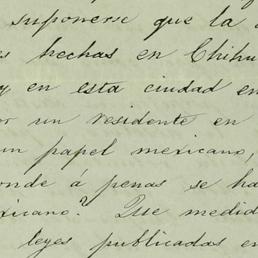 suponerse que la
hechas en Chihu
y en esta ciudad en
or un residente en
un papel mexicano,
onde á penas se ha
xicano? Que medid
leyes publicadas en